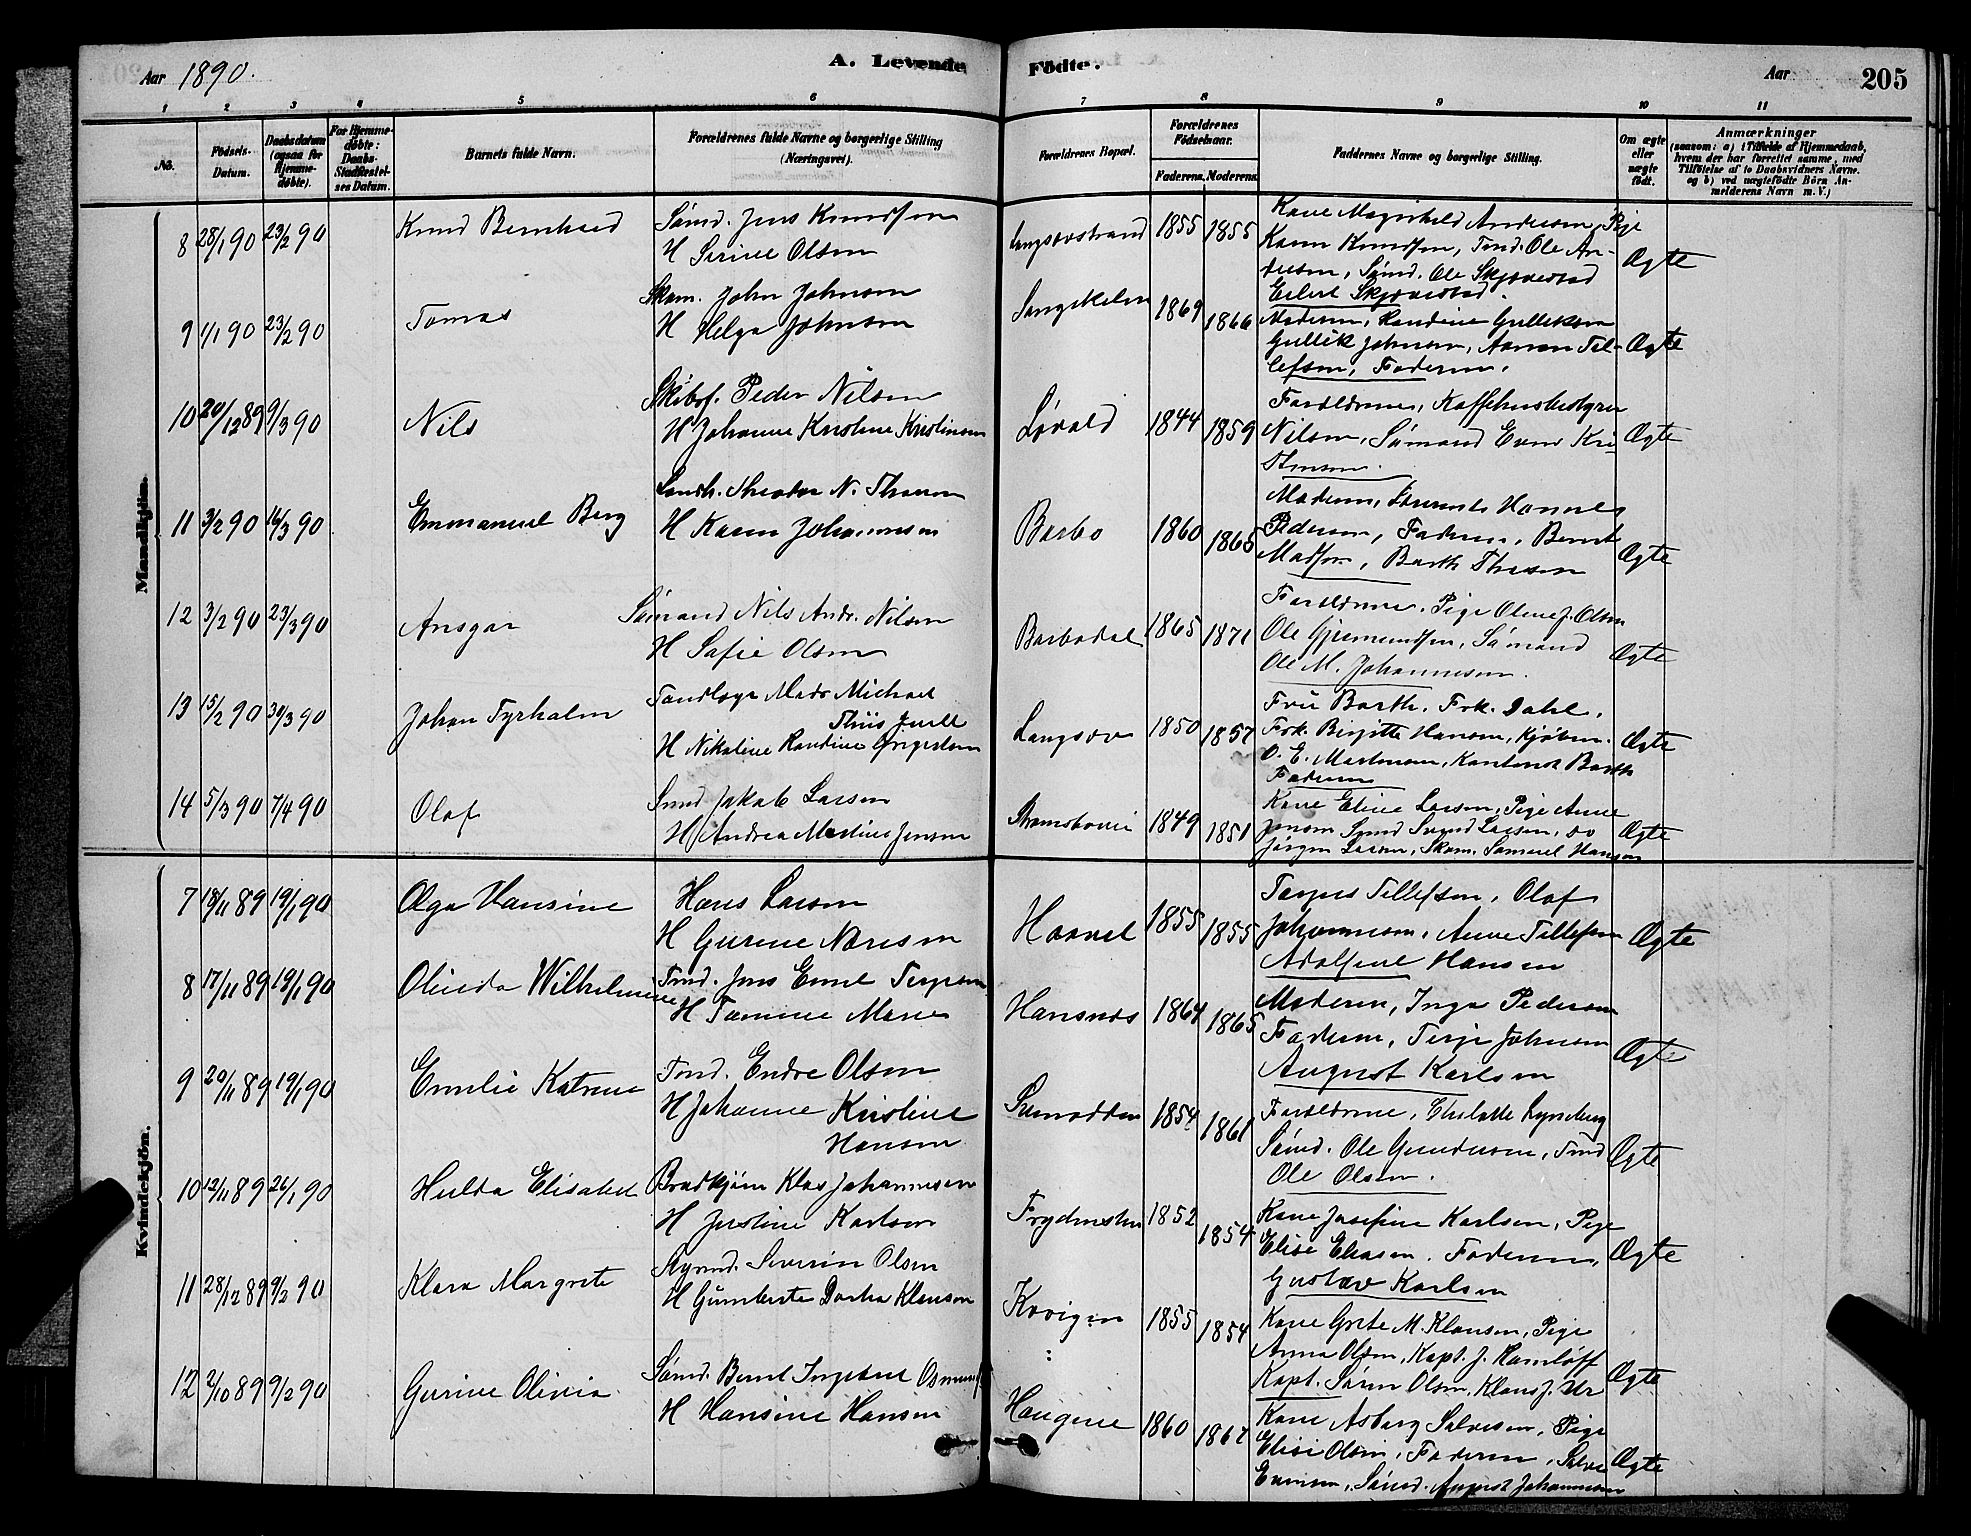 Aar 1890.
A. Levende Fødte.
Aar
205
1 2 3 4 5 6 7 8 9 10 11
No.
Fødsels-Datum.
Daabsdatum (ogsaa for Hjemmedøbte).
For Hjemmedøbte: Daabs-Stadfæstelses Datum.
Barnets fulde Navn.
Forældrenes fulde Navne og borgerlige Stilling (Næringsvei).
Forældrenes Bopæl.
Forældrenes Fødselsaar.
Faderens. Moderens.
Faddernes Navne og borgerlige Stilling.
Om ægte eller uægte født.
Anmærkninger (saasom: a) i Tilfælde af Hjemmedaab, hvem der har forrettet samme, med Tilføielse af to Daabsvidners Navne, og b) ved uægtefødte Børn Anmelderens Navn m.V.)
Mandkjön.
8 28/1 90 23/2 90 Knud Bernhard
Sømd. Jens Knudsen
H Serine Olsen
Langsøvstrand 1855 1855
Kone Magnhild Andersen, Pige
Karen Knudsen, Tmd. Ole An-
dersen, Sømd. Ole Skjøvestad
Eilert Skjøvestad.
Ægte
9 1/1 90 23/2 90 Tomas
Skom. John Johnsen
H Helga Johnsen
1869 1866
Moderen, Randine Gulleksen
Gullik Johnsen, Aanon Tel-
lefsen, Faderen.
Ægte
10 20/12 89 9/3 90 Nils
Skibsf. Peder Nilsen
H Johanne Kristine Kristensen
Løvold 1844 1859
Forældrene, Kaffehusbestyrer
Nilsen, Sømand Even Kri-
stensen.
Ægte
11 3/2 90 16/3 90 Emmanuel Berg
Theodor N. Thorsen
H Karen Johannesen
Barbo 1860 1865
Moderen, Hannes
Pedersen, Faderen, Bernt
Madsen, Barth Thorsen
Ægte
12 3/2 90 23/3 90 Ansgar
Sømand Nils Andr. Nilsen
H Sofie Olsen
Barbodal 1865 1871
Forældrene, Pige Oline J. Olsen
Ole Gjermundsen, Sømand
Ole M. Johannesen.
Ægte
13 15/2 90 30/3 90 Johan Tyrholm
Tandlæge Mads Michael
Thiis Juell
H Nikoline Randine Gregersen
Langsøv 1850 1857
Fru Barth, Frk. Dahl,
Frk. Birgitte Hansen, Kjøbm.
O. E. Mortensen, Kontorist Barth
Faderen
Ægte
14 5/3 90 7/4 90 Olaf
Smd Jakob Larsen
H Andrea Martine Jensen
Strømsbouei 1849 1851
Kone Eline Larsen, Pige Anne
Jensen Smd Svend Larsen, do
Jørgen Larsen, Skom. Samuel Hansen
Ægte
Kvindekjön.
7 18/11 89 19/1 90 Olga Hansine
Hans Larsen
H Gurine Noresen
Haavet 1855 1855
Tarjus Tellefsen, Olaf
Johannesen, Anne Tellefsen
Adolfine Hansen
Ægte
8 17/11 89 19/1 90 Olinda Wilhelmine
Tmd. Jens Emil Terjesen
H Tomine Marie
Hansnæs 1864 1865
Moderen, Inga Pedersen
Faderen, Terje Johnsen
August Karlsen
Ægte
9 20/11 89 19/1 90 Emilie Katrine
Tmd. Endre Olsen
H Johanne Kristine
Hansen
1854 1861
Forældrene, Lyneberg
Sømd. Ole Gundersen, Tmd
Ole Olsen.
Ægte
10 12/11 89 26/1 90 Hulda Elisabet
Brødkjører Klas Johannesen
H Justine Karlsen
Frydensten 1852 1854
Kone Josefine Karlsen, Pige
Elise Eliasen, Faderen,
Gustav Karlsen
Ægte
11 28/12 89 9/2 90 Klara Margrete
Severin Olsen
H Dortea Klausen
Kovigen 1855 1854
Kone Grete M. Klausen, Pige
Anna Olsen, Kapt. J. Ramløff
Kapt. Søren Olsen, Klaus J. Ur
Ægte
12 2/10 89 9/2 90 Gurine Olivia
Sømd. Bernt Ingebret Osmunds
H Hansine Hansen
Haugene 1860 1867
Kone Asborg Salvesen, Pige
Elise Olsen, Faderen, Salve
Evensen, Sømd. August Johannesen
Ægte